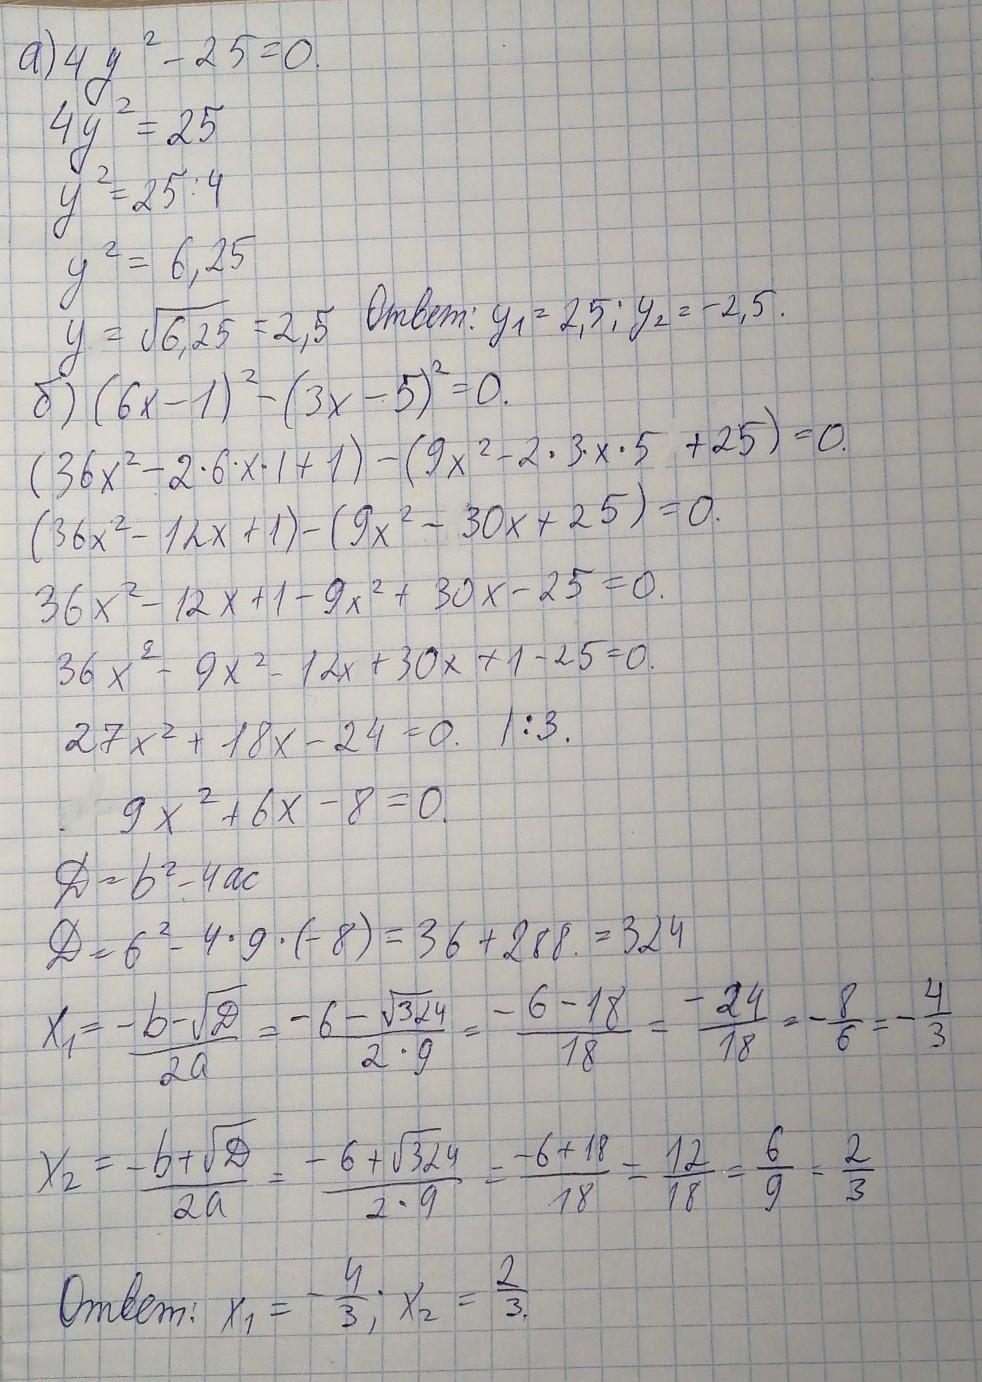 а) 4y² - 25 = 0.
4y² = 25
y² = 25 : 4
y² = 6,25
y = √6,25 = 2,5 Ответ: y₁ = 2,5; y₂ = -2,5.
б) (6x - 1)² - (3x - 5)² = 0.
(36x² - 2·6·x·1 + 1) - (9x² - 2·3·x·5 + 25) = 0.
(36x² - 12x + 1) - (9x² - 30x + 25) = 0.
36x² - 12x + 1 - 9x² + 30x - 25 = 0.
36x² - 9x² - 12x + 30x + 1 - 25 = 0.
27x² + 18x - 24 = 0. | : 3.
9x² + 6x - 8 = 0.
D = b² - 4ac
D = 6² - 4·9·(-8) = 36 + 288. = 324
x₁ = (-b - √D)/(2a) = (-6 - √324)/(2·9) = (-6 - 18)/18 = (-24)/18 = -8/6 = -4/3
x₂ = (-b + √D)/(2a) = (-6 + √324)/(2·9) = (-6 + 18)/18 = 12/18 = 6/9 = 2/3
Ответ: x₁ = -4/3; x₂ = 2/3.